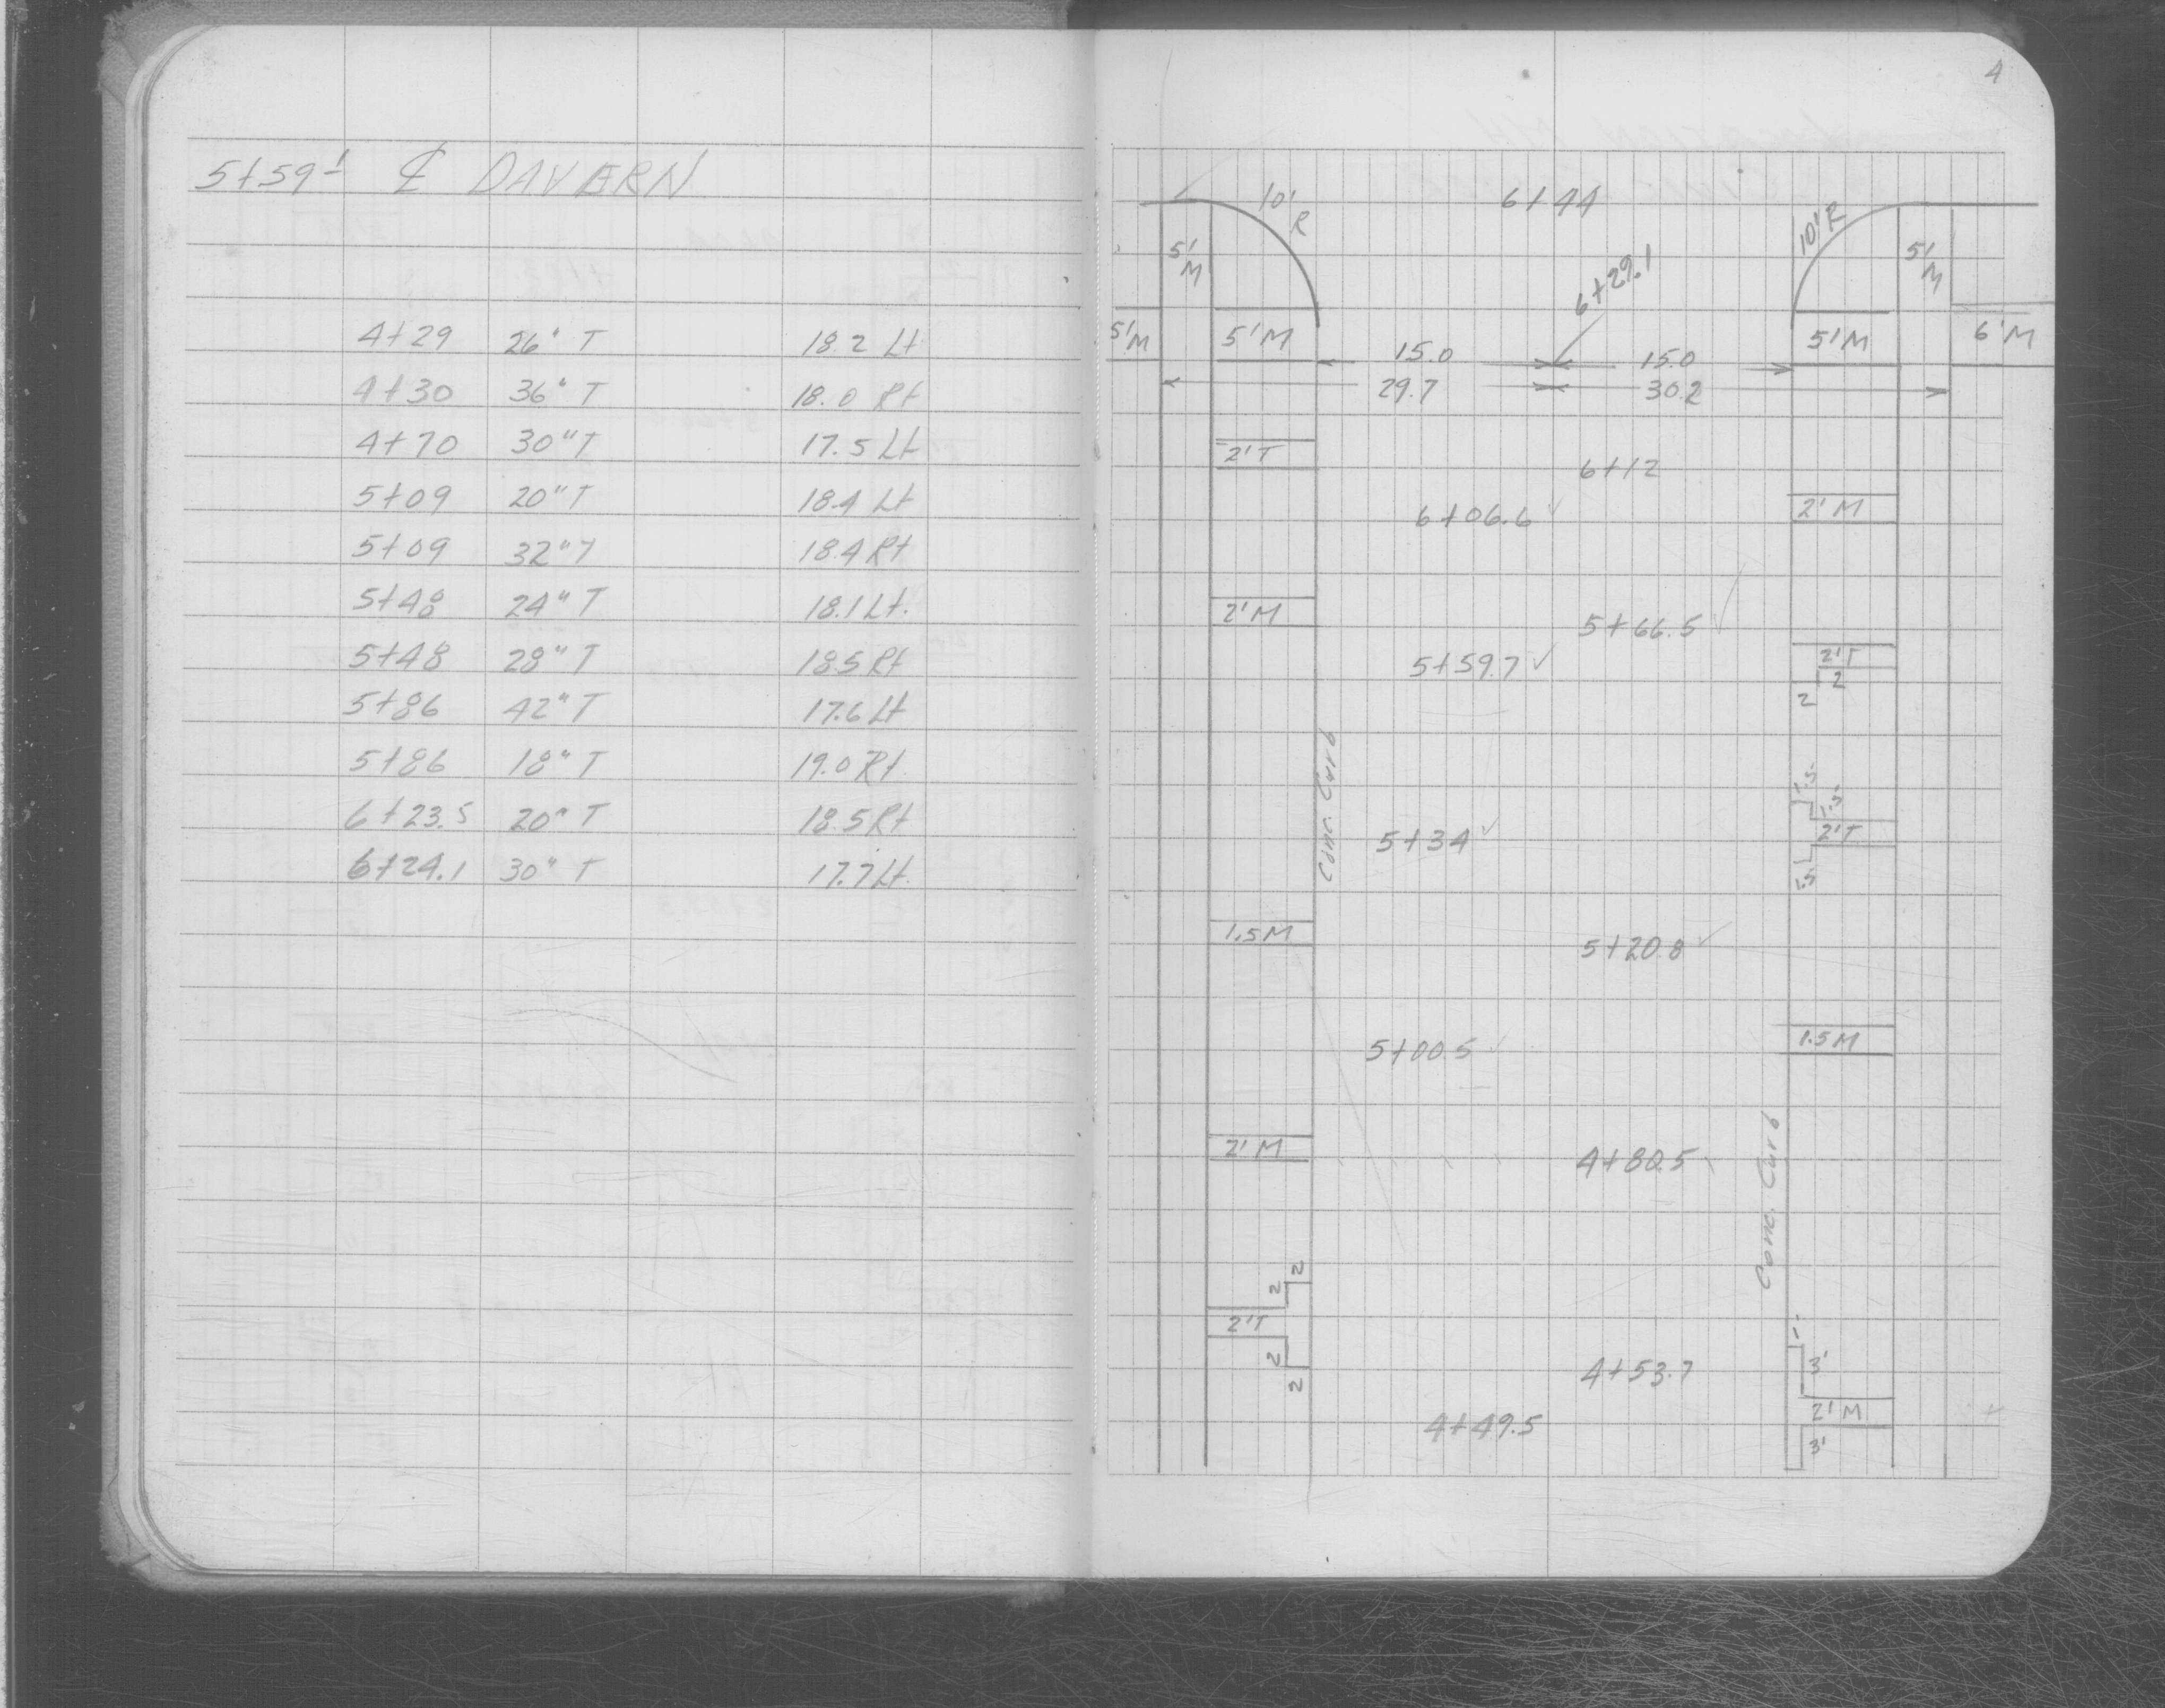 5+59.1 ℄ DAVERN
4+29 26" T 18.2 Lt
4+30 36" T 18.0 Rt
4+70 30" T 17.5 Lt
5+09 20" T 18.4 Lt
5+09 32" T 18.4 Rt
5+48 24" T 18.1 Lt.
5+48 28" T 18.5 Rt
5+86 42" T 17.6 Lt
5+86 18" T 19.0 Rt.
6+23.5 20" T 18.5 Rt
6+24.1 30" T 17.7 Lt.
4
10' R 6+44 10' R
5' M 5' M
6+29.1
5'M 5'M 15.0 15.0 5'M 6'M
29.7 30.2
2'T
6+12
6+06.6 ✓ 2'M
2'M 5+66.5 ✓
5+59.7 ✓ 2'T
2 2
Conc. Curb
1.5 1.5
5+34 ✓ 2'T
1.5
1.5M 5+20.8 ✓
5+00.5 ✓ 1.5M
2'M 4+80.5
Conc. Curb
2 2
2'T
2 4+53.7 3'
2
4+49.5 2'M
3'